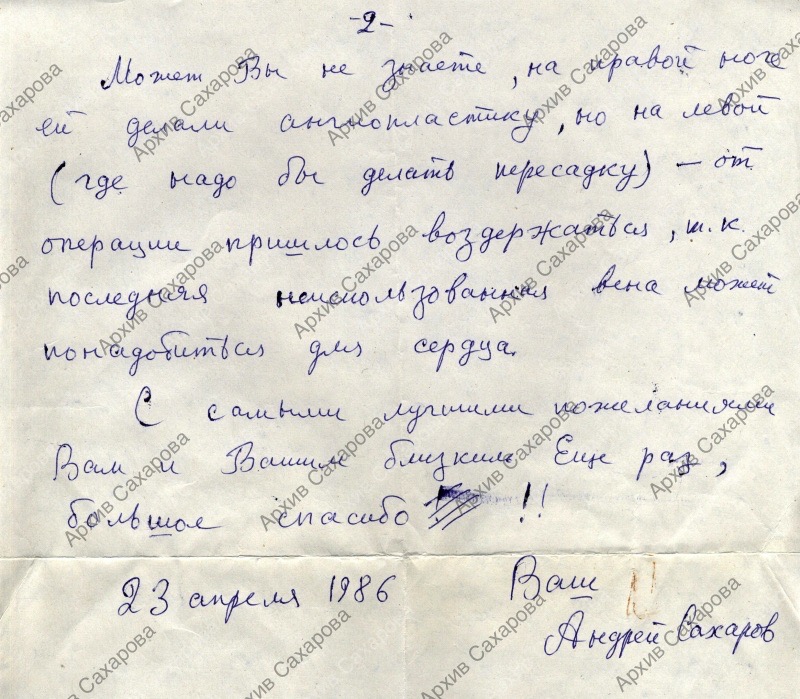 -2-
Может Вы не знаете, на правой ноге
ей делали ангиопластику, но на левой
(где надо бы делать пересадку) – от
операции пришлось воздержаться, т.к.
последняя неиспользованная вена может
понадобиться для сердца.
С самыми лучшими пожеланиями
Вам и Вашим близким. Еще раз,
большое спасибо !!
23 апреля 1986
Ваш
Андрей Сахаров
Архив Сахарова